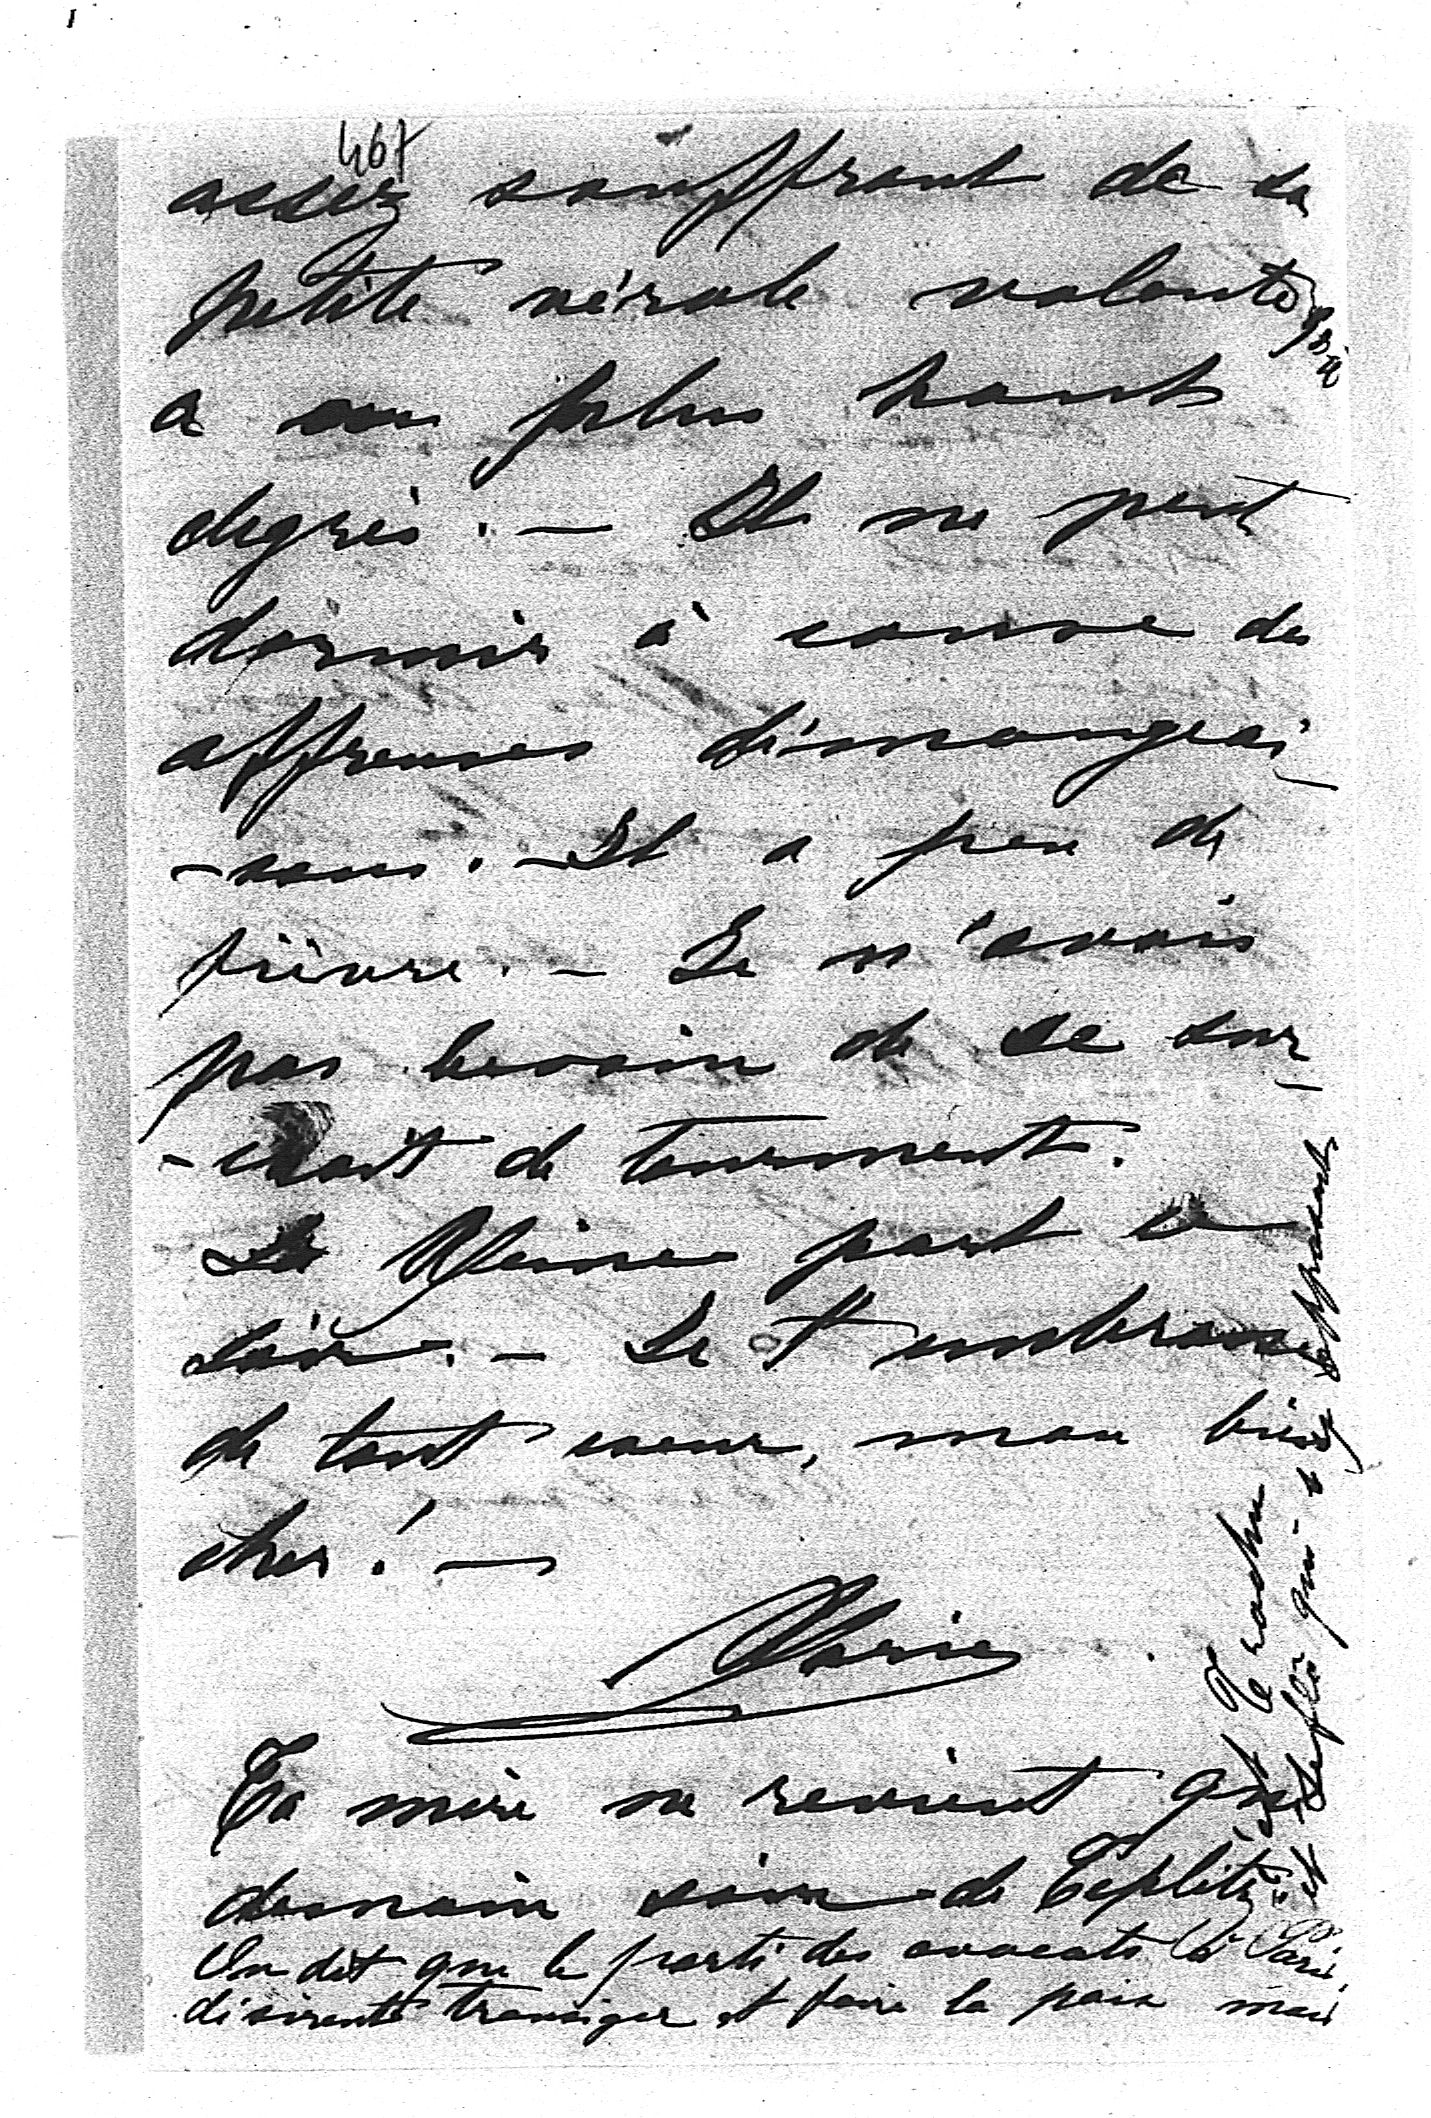 467
assez souffrant de sa
petite vérole volante qui
a son plus haut
degrés. — Il ne peut
dormir à cause des
affreuses démangeai-
-sons. — Il a peu de
fièvre. — Je n'avais
pas besoin de ce sur-
-croit de tourment.
La Reine part ce
soir. — Je t'embrasse
de tout coeur, mon bien
cher! —
Marie
Ta mère ne revient que
demain soir de Téplitz
On dit que le parti des avocats à Paris
désirent transiger et faire la paix mais
Trochu
qui s'y opposent